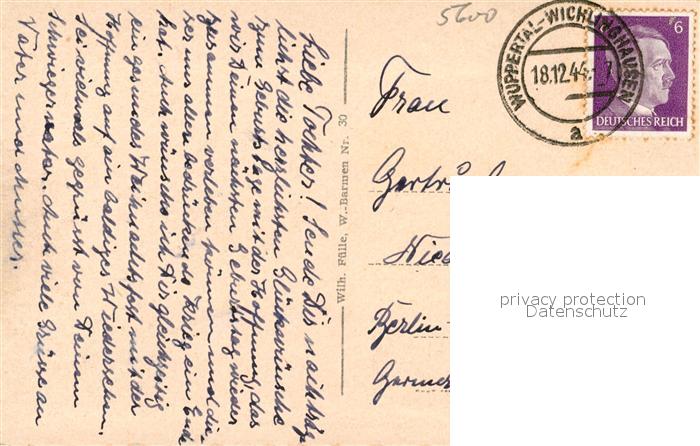 5600
WUPPERTAL-WICHLINGHAUSEN
18.12.44.-
a
6
DEUTSCHES REICH
Frau
Gertr
Nied
Berlin-
Germer
privacy protection
Datenschutz
Wilh. Fülle, W.-Barmen Nr. 30
Liebe Tochter! Sende Dir nachträg-
lichst die herzlichsten Glückwünsche
zum Geburtstage mit der Hoffnung, das
wir Deinen nächsten Geburtstag wieder
zusammen verleben können und die-
ser uns allen bedrückende Krieg ein Ende
hat. Auch wünsche ich Dir gleichzeitig
ein gesundes Weihnachtsfest mit der
Hoffnung auf ein baldiges Wiedersehen.
Sei vielmals gegrüsst von Deinem
Schwiegervater. Auch viele Grüsse an
Vater und Mutter.